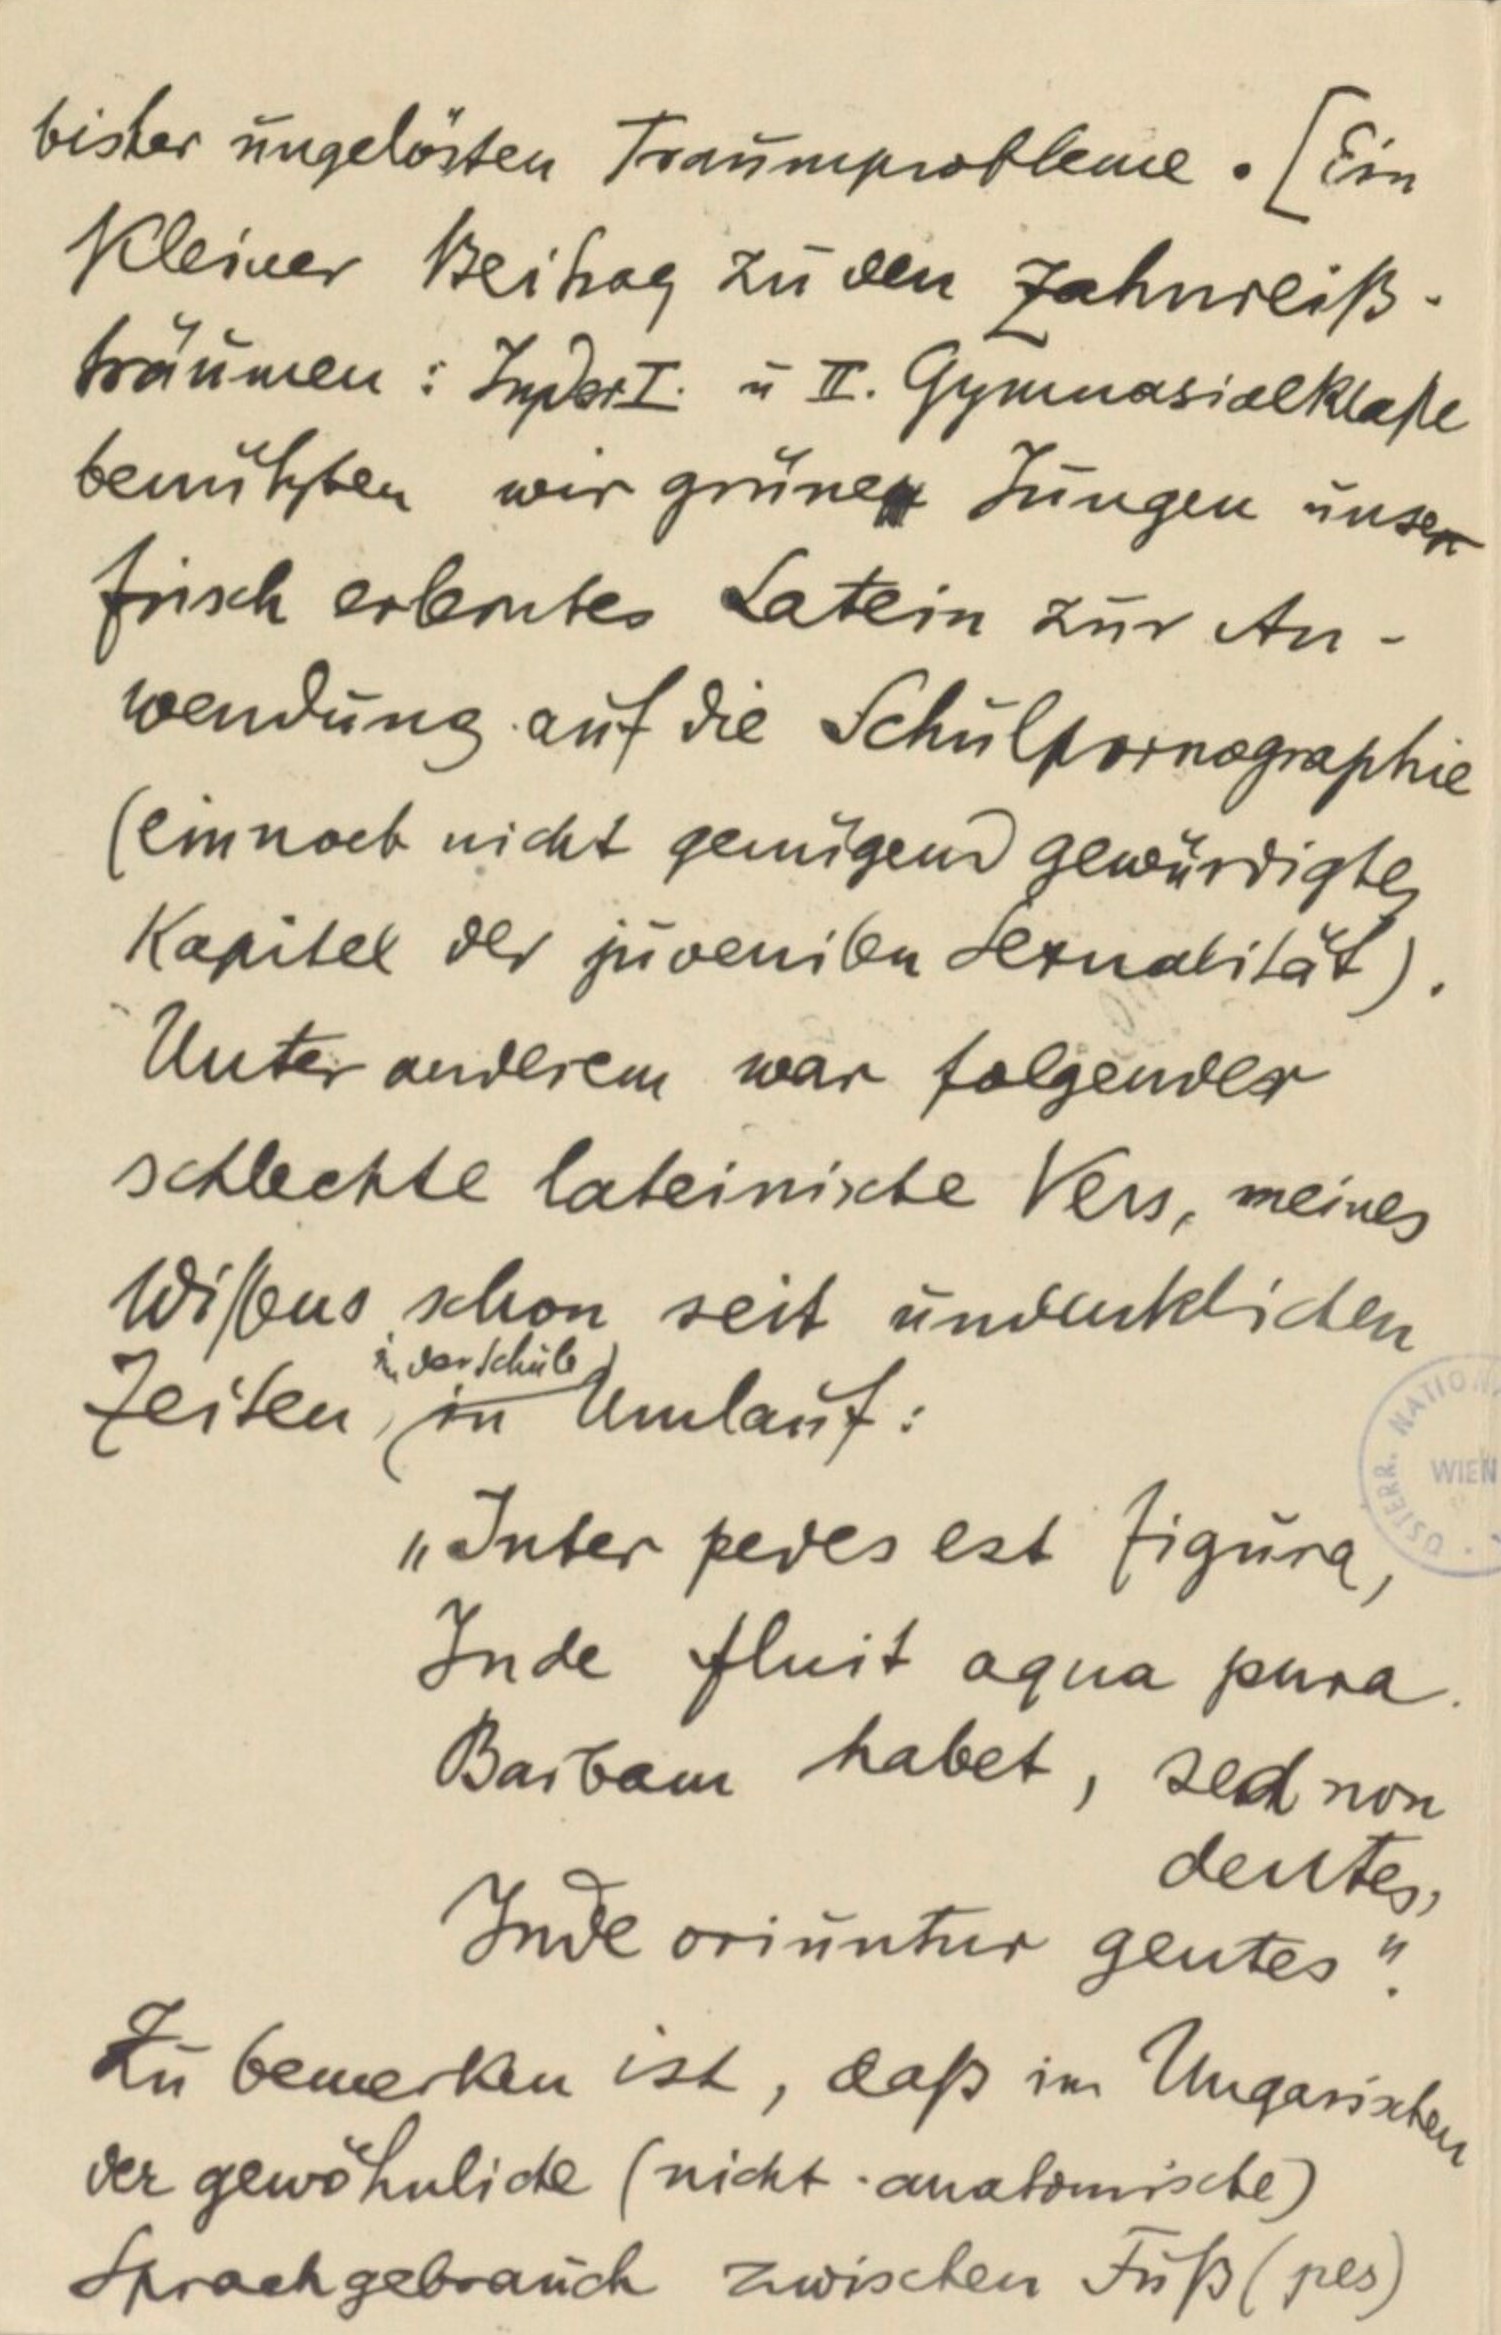 bisher ungelösten Traumprobleme. [Ein
Kleiner Beitrag zu den Zahnreiß-
träumen: In der I. u II. Gymnasialklaße
benützten wir grüne Jungen unser
frisch erlerntes Latein zur An-
wendung auf die Schulpornographie
(ein noch nicht genügend gewürdigtes
Kapitel der juvenilen Sexualität).
Unter anderem war folgender
schlechte lateinische Vers, meines
Wißens schon seit undenklichen
in der Schule
Zeiten, in Umlauf:
„Inter pedes est figura,
Inde fluit aqua pura.
Barbam habet, sed non
dentes,
Inde oriuntur gentes".
Zu bemerken ist, daß im Ungarischen
der gewöhnliche (nicht-anatomische)
Sprachgebrauch zwischen Fuß (pes)
ÖSTERR. NATION
WIEN